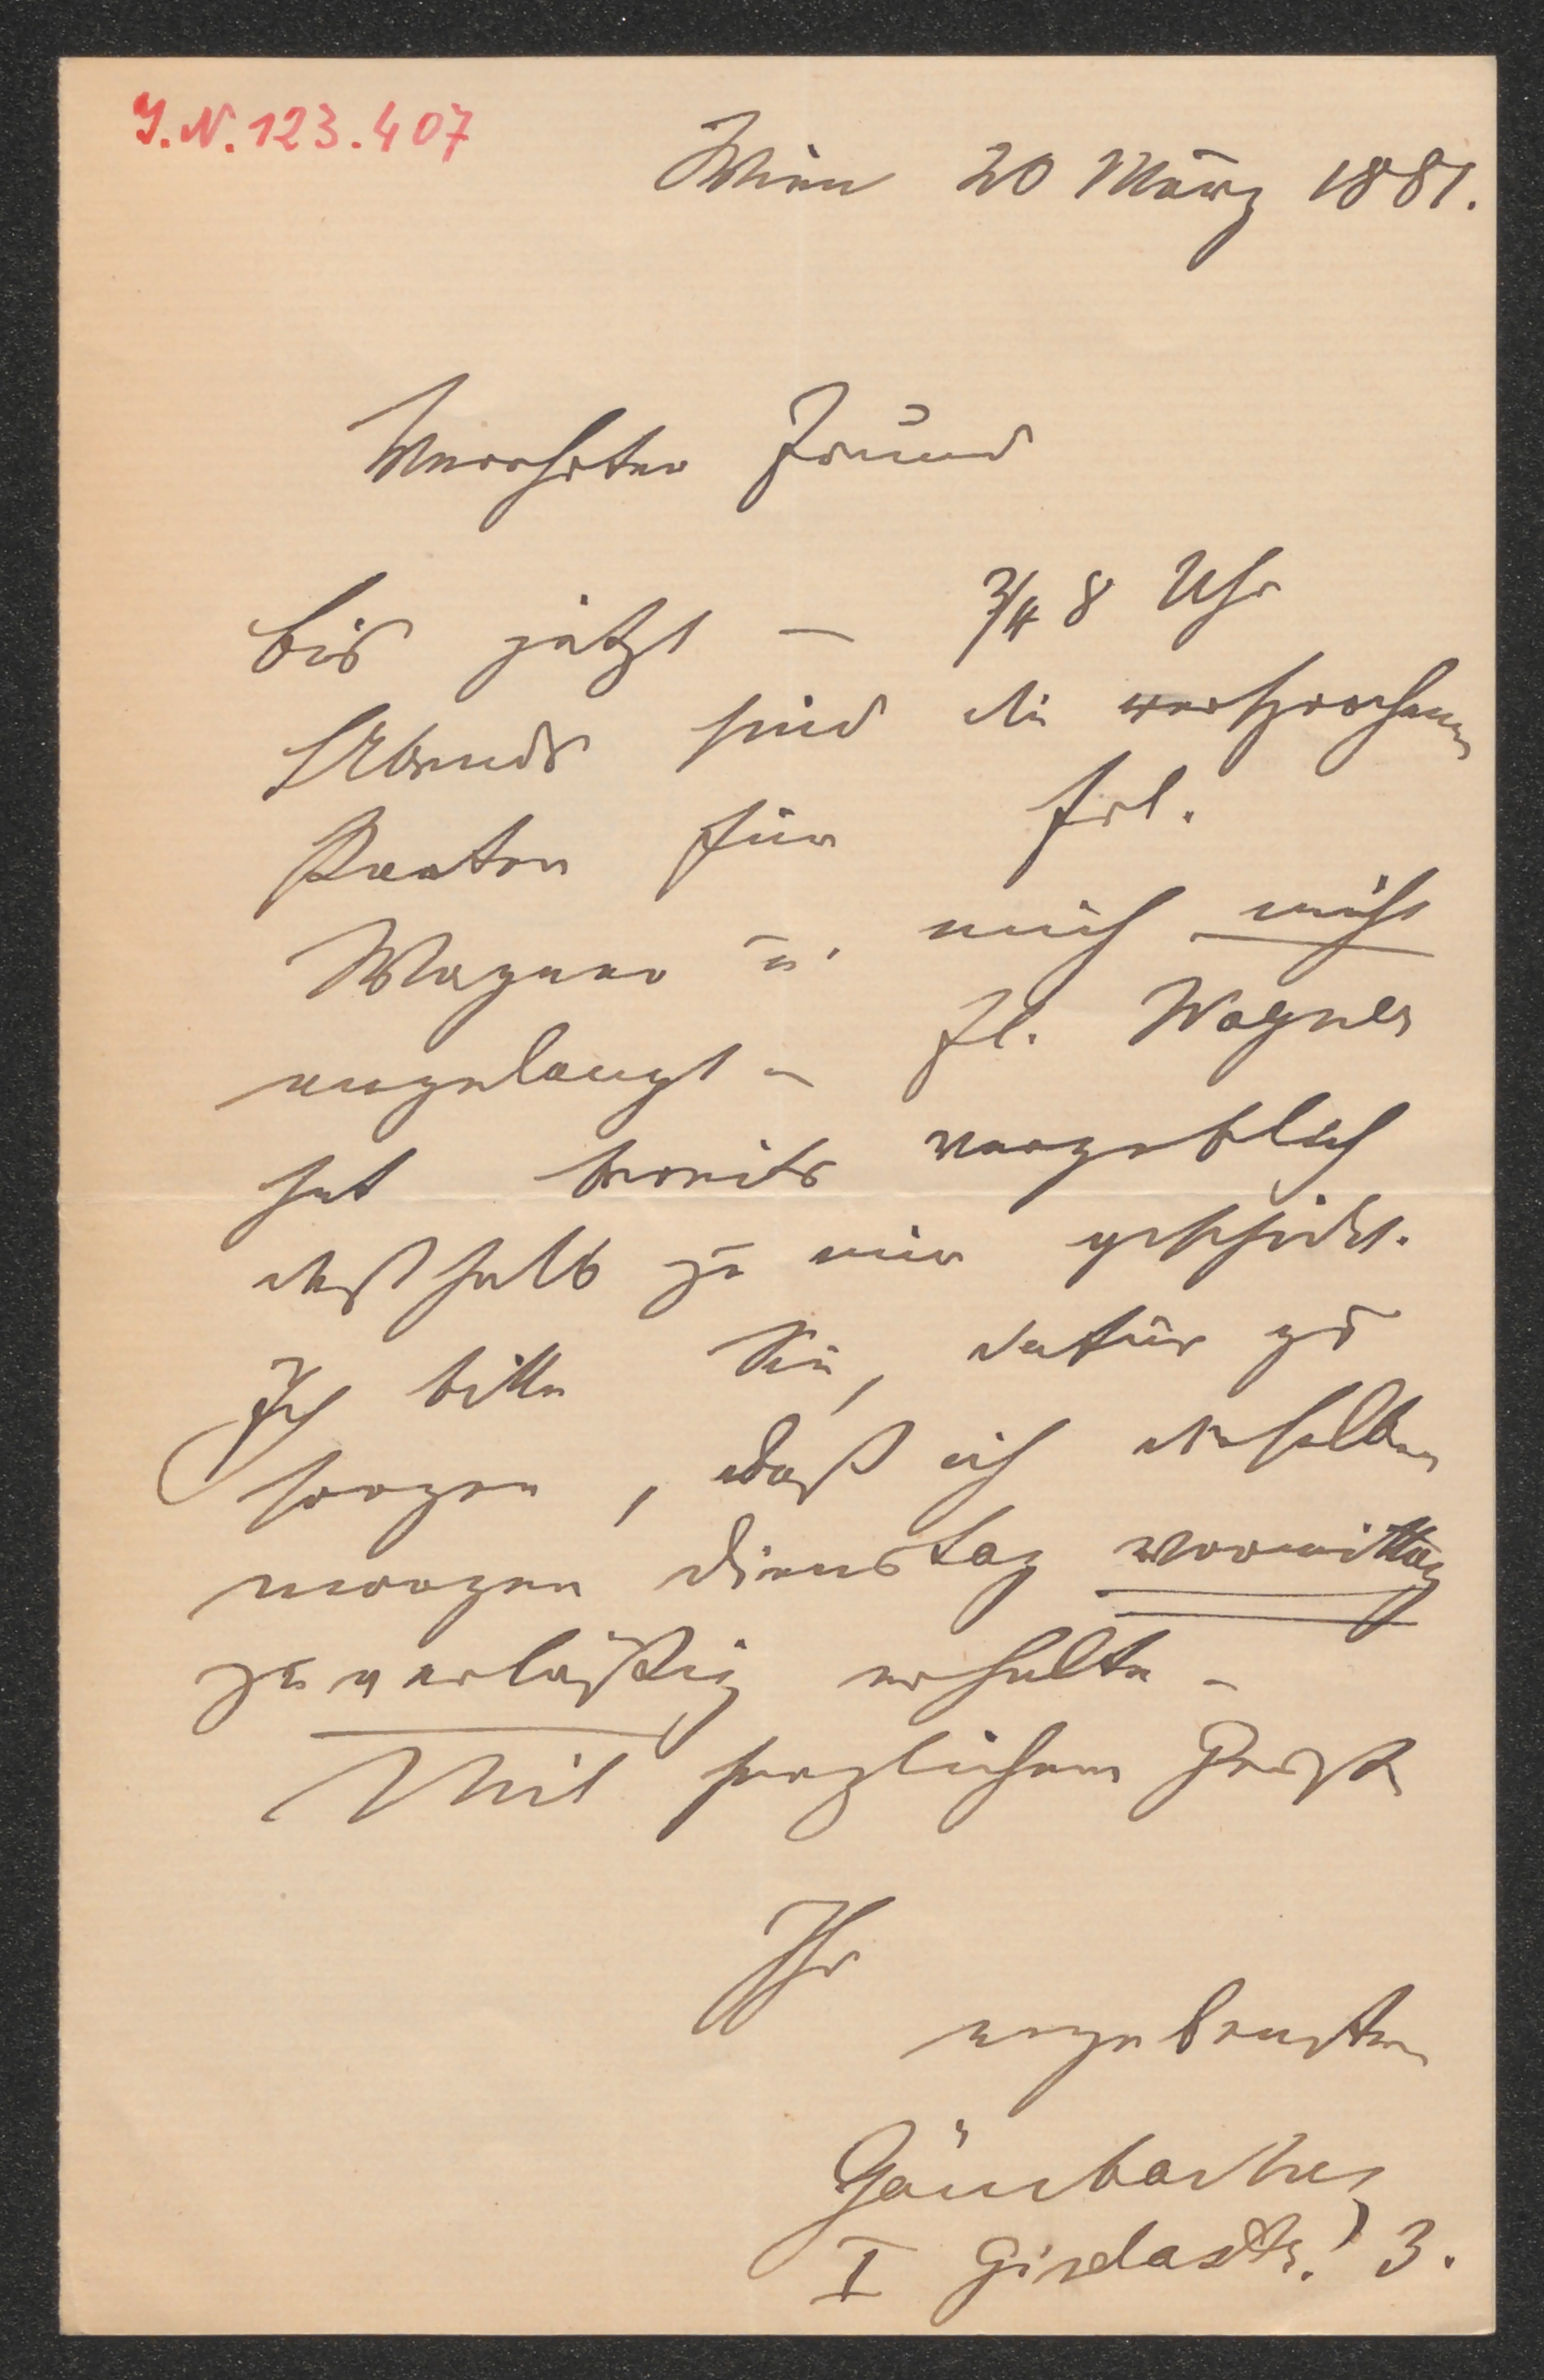 I.N. 123.407
Wien 20 März 1881.
Verehrter Freund
bis jetzt – 3/4 8 Uhr
Abends sind die versprochenen
Karten für Frl.
Wagner u. mich nicht
angelangt – Fl. Wagner
hat bereits vergeblich
deßhalb zu mir geschickt.
Ich bitte Sie, dafür zu
sorgen, daß ich dieselben
morgen Dienstag vormittag
zuverläßig erhalte –
Mit herzlichem
Ihr
ergebenster
Gänsbacher
I Giselastr. 3.